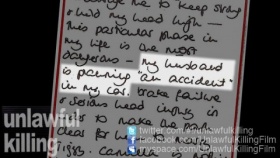 me to keep strong
& hold my head high -
This particular phase in
my life is the most
dangerous - my husband
is planning "an accident"
in my car. brake failure
& serious head injury in
to make the
clear for
unlawful
killing
twitter.com/unlawfulkilling
facebook.com/UnlawfulKillingFilm
myspace.com/unlawfulkillingfilm